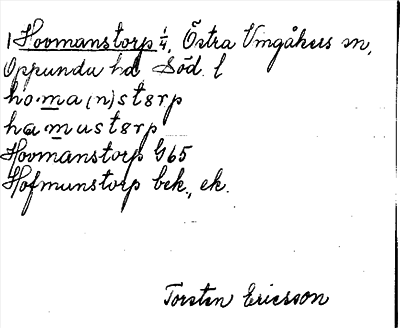 1 Hovmanstorp 1/4, Östra Vingåkers sn,
Oppunda hd Söd. l
ho·ma(n)størp
hamustørp
Hovmanstorp G65
Hofmanstorp bek., ek.
Torsten Ericsson